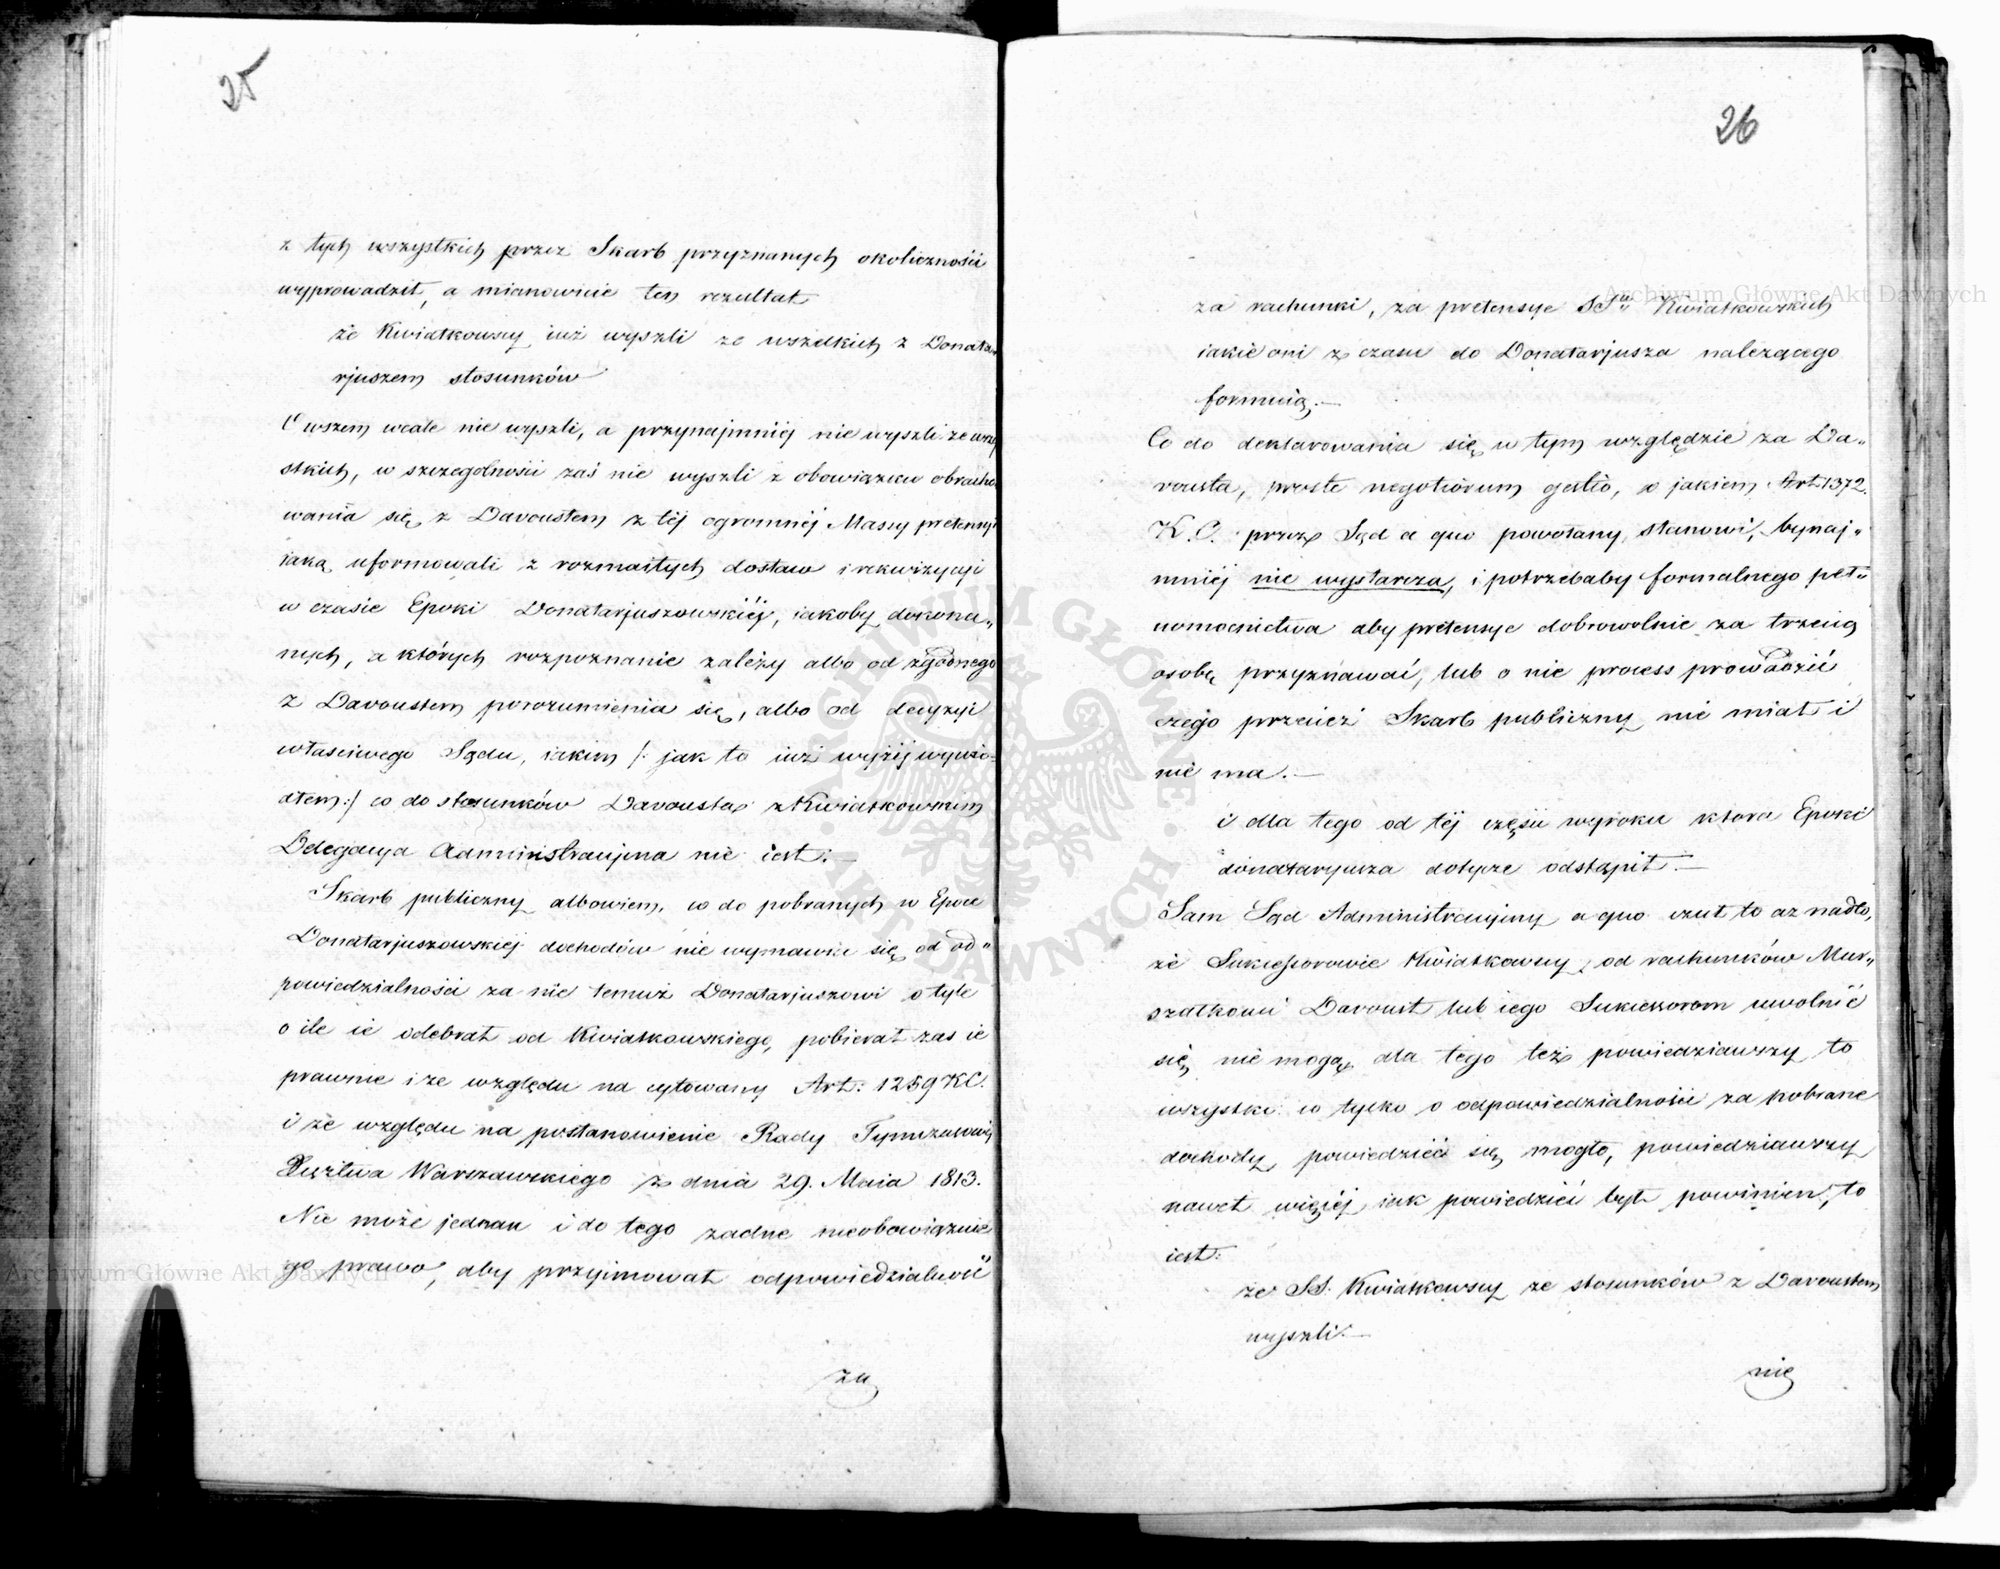 25
z tych wszystkich przez Skarb przyznanych okoliczności
wyprowadził, a mianowicie ten rezultat
że Kwiatkowscy iuż wyszli ze wszelkich z Donata
rjuszem stosunków
Owszem wcale nie wyszli, a przynajmniéj nie wyszli ze wszy
stkich, w szczegolności zaś nie wyszli z obowiązku obracho
wania się z Davoustem z téj ogromnéj Massy pretensyi
iaką uformowali z rozmaitych dostaw i rekwizycyi
w czasie Epoki Donatarjuszowskiéj, iakoby dokona„
nych, a których rozpoznanie zależy albo od zgodnego
z Davoustem porozumienia się, albo od decyzyi
właściwego Sądu, iakim /: jak to iuż wyżéj wywio„
dłem :/ co do stosunków Davousta z Kwiatkowskim
Delegacya Administracyjna nie iest: —
Skarb publiczny albowiem, co do pobranych w Epoce
Donatarjuszowskiéj dochodów nie wymawia się od od„
powiedzialności za nie temuż Donatarjuszowi o tyle
o ile ie odebrał od Kwiatkowskiego, pobierał zas ie
prawnie i ze względu na cytowany Art: 1259 KC.
i ze względu na postanowienie Rady Tymczasowéj
Xięztwa Warszawskiego z dnia 29. Maia 1813.
Nie może jednak i do tego żadne nieobowiązuie
go prawo, aby przyimował odpowiedzialność
za
26
za rachunki, za pretensye SSów Kwiatkowskich
iakie oni z czasu do Donatarjusza należącego
formuią. —
Co do deklarowania się w tym względzie za Da„
vousta, proste negotiorum gestio, o jakiem Art 1372.
K. C. przez Sąd a quo powołany stanowi, bynaj„
mniéj nie wystarcza, i potrzebaby formalnego peł„
nomocnictwa aby pretensye dobrowolnie za trzecią
osobę przyznawać, lub o nie process prowadzić
czego przecież Skarb publiczny nie miał i
nie ma. —
i dla tego od téj części wyroku ktora Epoki
donataryusza dotycze odstąpił. —
Sam Sąd Administracyjny a quo czuł to aż nadto,
że Sukcessorowie Kwiatkowscy od rachunków Mar„
szałkowi Davoust lub iego Sukcessorom uwolnić
się nie mogą, dla tego też powiedziawszy to
wszystko co tylko o odpowiedzialności za pobrane
dochody, powiedzieć się mogło, powiedziawszy
nawet więcéj iak powiedzieć był powinien, to
iest:
że SS. Kwiatkowscy ze stosunków z Davoustem
wyszli. —
nie
Archiwum Główne Akt Dawnych
Archiwum Główne Akt Dawnych
ARCHIWUM GŁÓWNE AKT DAWNYCH